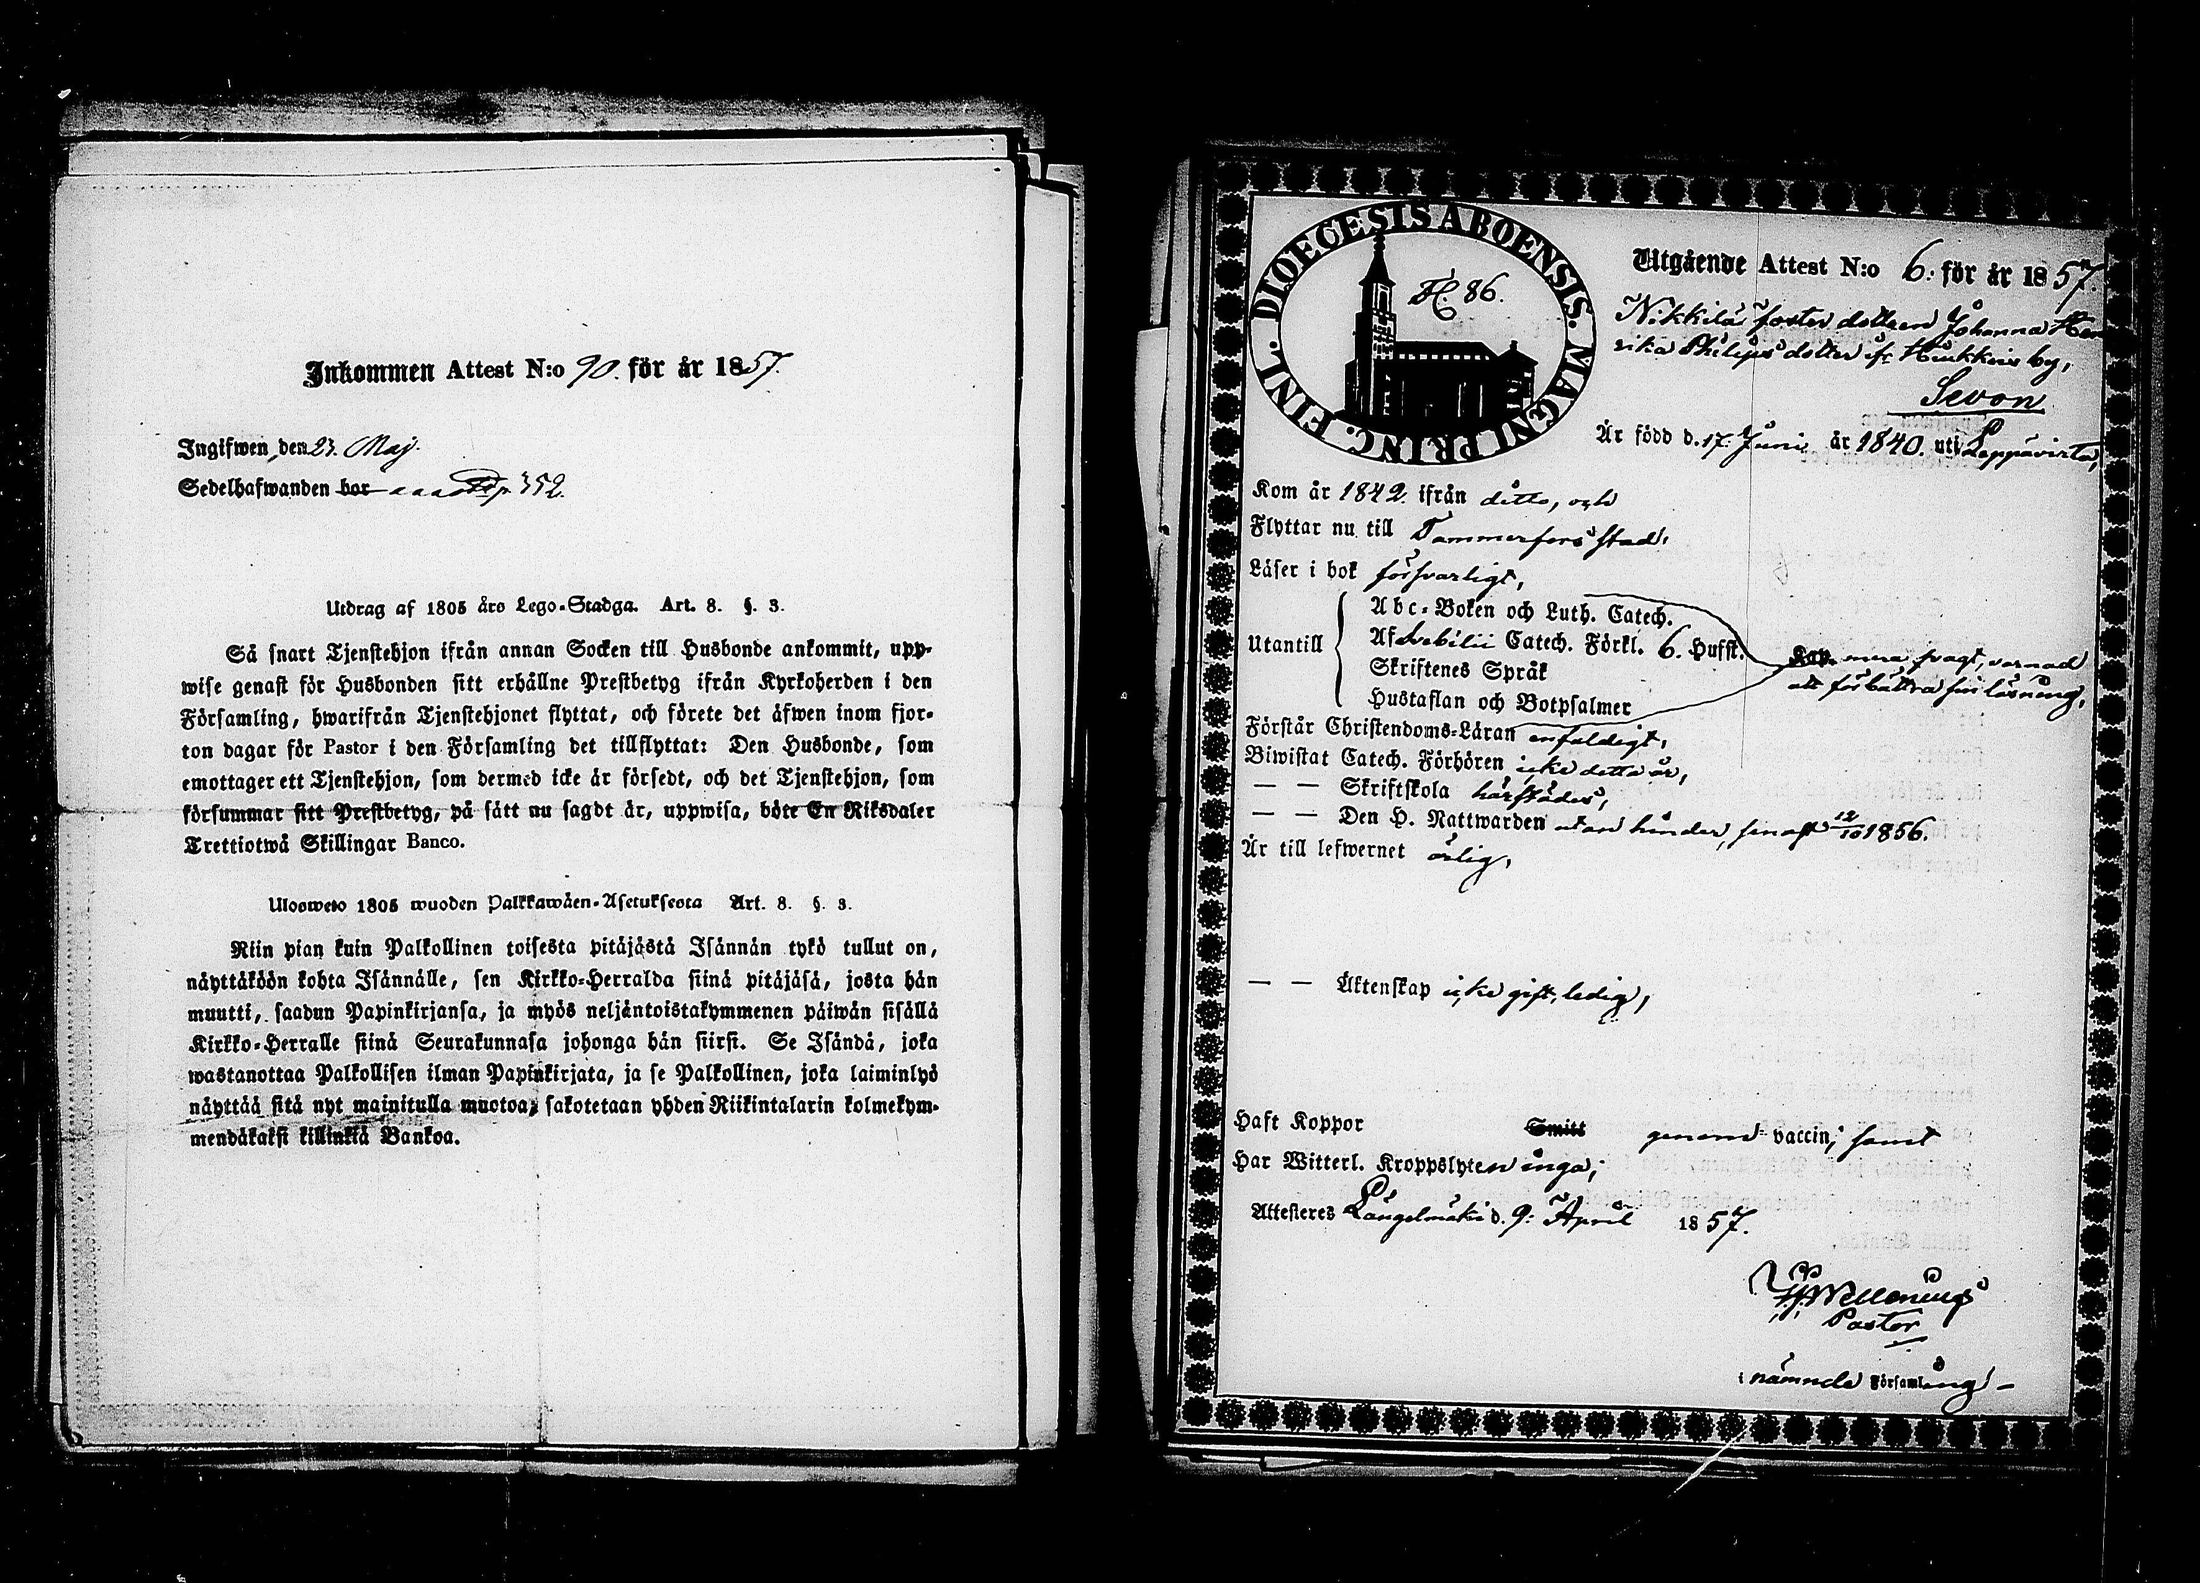 Inkommen Attest N:o 90. för år 1857.
Ingifwen den 23. Maj.
Sedelhafwanden bor p. 352.
Utdrag af 1805 års Lego-Stadga. Art. 8. §. 3.
Så snart Tjenstehjon ifrån annan Socken till Husbonde ankommit, upp-
wise genast för Husbonden sitt erhållne Prestbetyg ifrån Kyrkoherden i den
Församling, hwarifrån Tjenstehjonet flyttat, och förete det äfwen inom fjor-
ton dagar för Pastor i den Församling det tillflyttat: Den Husbonde, som
emottager ett Tjenstehjon, som dermed icke är försedt, och det Tjenstehjon, som
försummar sitt Prestbetyg, på sätt nu sagdt är, uppwisa, böte En Riksdaler
Trettiotwå Skillingar Banco.
Ulosweto 1805 wuoden Palkkawäen-Asetuksesta Art. 8. §. 3.
Niin pian kuin Palkollinen toisesta pitäjästä Isännän tykö tullut on,
näyttäköön kohta Isännälle, sen Kirkko-Herralda siinä pitäjäsä, josta hän
muutti, saadun Papinkirjansa, ja myös neljäntoistakymmenen päiwän sisällä
Kirkko-Herralle siinä Seurakunnasa johonga hän siirsi. Se Isändä, joka
wastanottaa Palkollisen ilman Papinkirjata, ja se Palkollinen, joka laiminlyö
näyttää sitä nyt mainitulla muotoa, sakotetaan yhden Riikintalarin kolmekym-
mendäkaksi killinkiä Bankoa.
DIOECESIS ABOENSIS. MAGNI PRINC. FINL.
H. 86.
Utgående Attest N:o 6. för år 1857.
Nikkilä foster dottren Johanna Hen
rika Philipsdotter ifr. by,
Sevon
Är född d. 17. Juni år 1840. uti Leppävirta,
Kom år 1842. ifrån ditto, och
Flyttar nu till Tammerfors stad.
Läser i bok försvarligt,
Utantill
Abc-Boken och Luth. Catech.
Af Svebilii Catech. Förkl. 6. Hufst.
Skriftenes Språk
Hustaflan och Botpsalmer
Kap. mera svagt, varnad
att förbättra sin läsning,
Förstår Christendoms-Läran enfaldigt,
Biwistat Catech. Förhören icke detta år,
— — Skriftskola härstädes,
— — Den H. Nattwarden utan hinder, senast 12/10 1856.
Är till lefwernet ärlig,
— — Äktenskap icke gift, ledig,
Haft Koppor Smitt genom vaccin, samt
Har Witterl. Kroppslyten inga;
Attesteres Längelmäki d. 9: April 1857.
Pastor
i nämnde Församling –